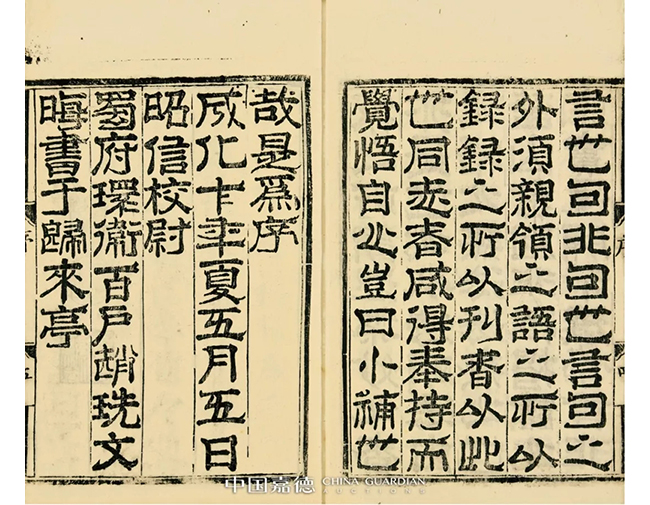 言也句非句也言句之
外須親領之語之所以
録録之所以刊者以此
也同志者咸得奉持而
覺悟自心豈曰小補也
哉是爲序
成化十年夏五月五日
昭信校尉
蜀府環衛百戶趙珖文
晦書于歸來亭
序
五
中国嘉德 CHINA GUARDIAN
AUCTIONS